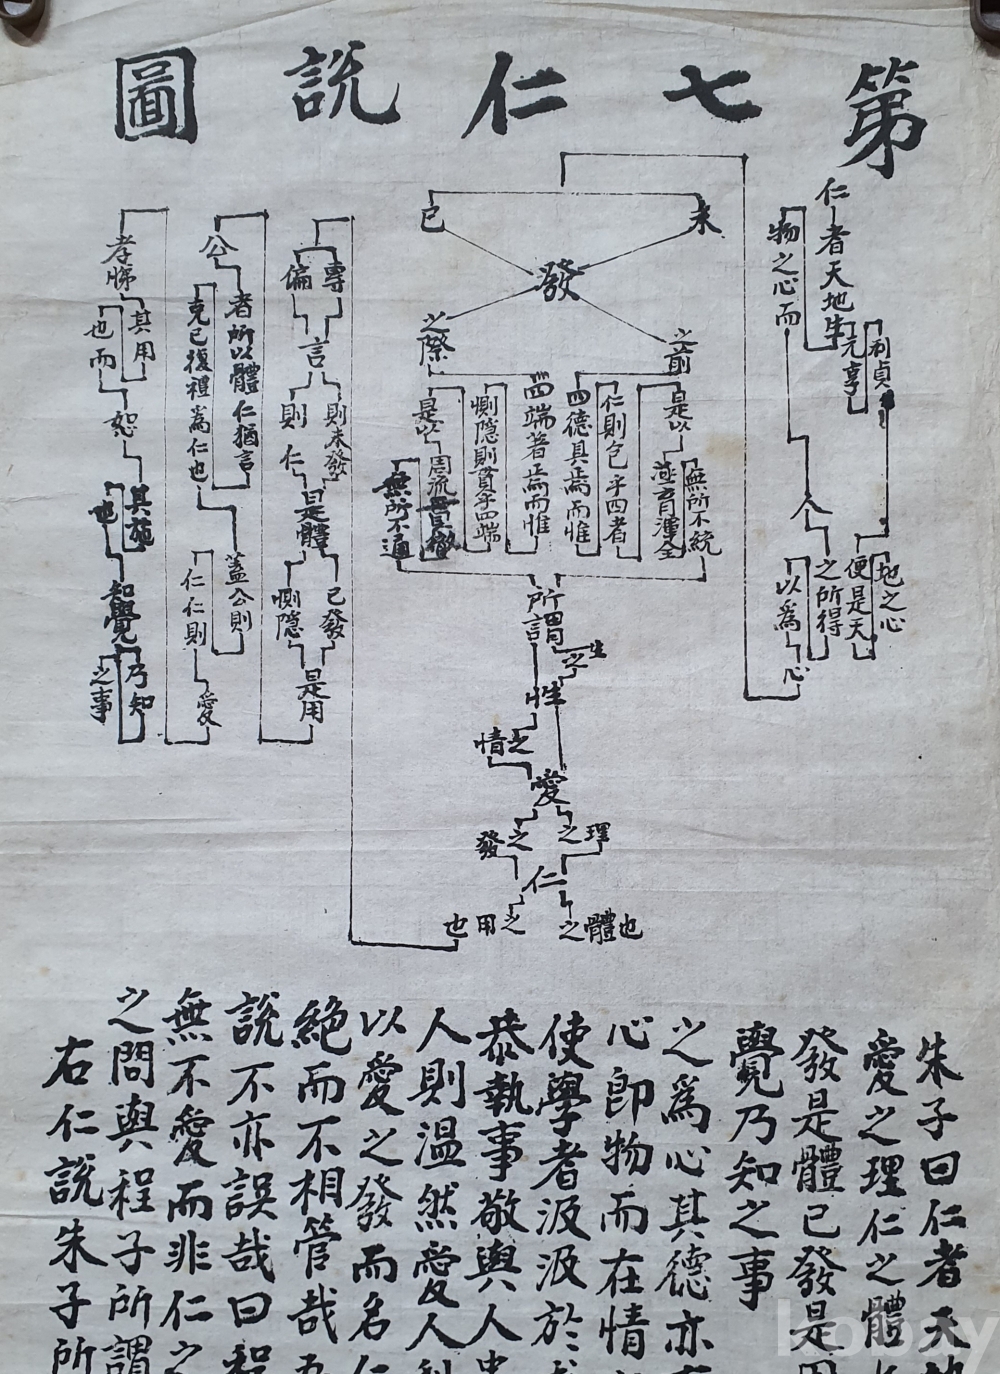 第七仁說圖
仁者天地生
物之心而
元亨
利貞
人
地之心
便是天
之所得
以為
心
未
已
發
之前
之際
是以
無所不統
渾全
仁則包乎四者
四德具焉而惟
四端著焉而惟
惻隱則貫乎四端
是以
周流貫徹
無所不通
所謂
所言
生
之
性
之情
愛
之理
之發
仁
之體也
之用也
專
偏
言
則未發
則仁
是體
已發
惻隱
是用
公
者所以體仁猶言
克已復禮為仁也
蓋公則
仁仁則
愛
孝悌
其用
也而
恕
其施
也
知覺
乃知
之事
朱子曰仁者天
愛之理仁之體
發是體已發是用
覺乃知之事
之為心其德亦
心即物而在情
使學者汲汲於
恭執事敬與人
人則溫然愛人
以愛之發而名
絕而不相管哉
說不亦誤哉曰程
無不愛而非仁之
之問與程子所謂
右仁說朱子所
kobay